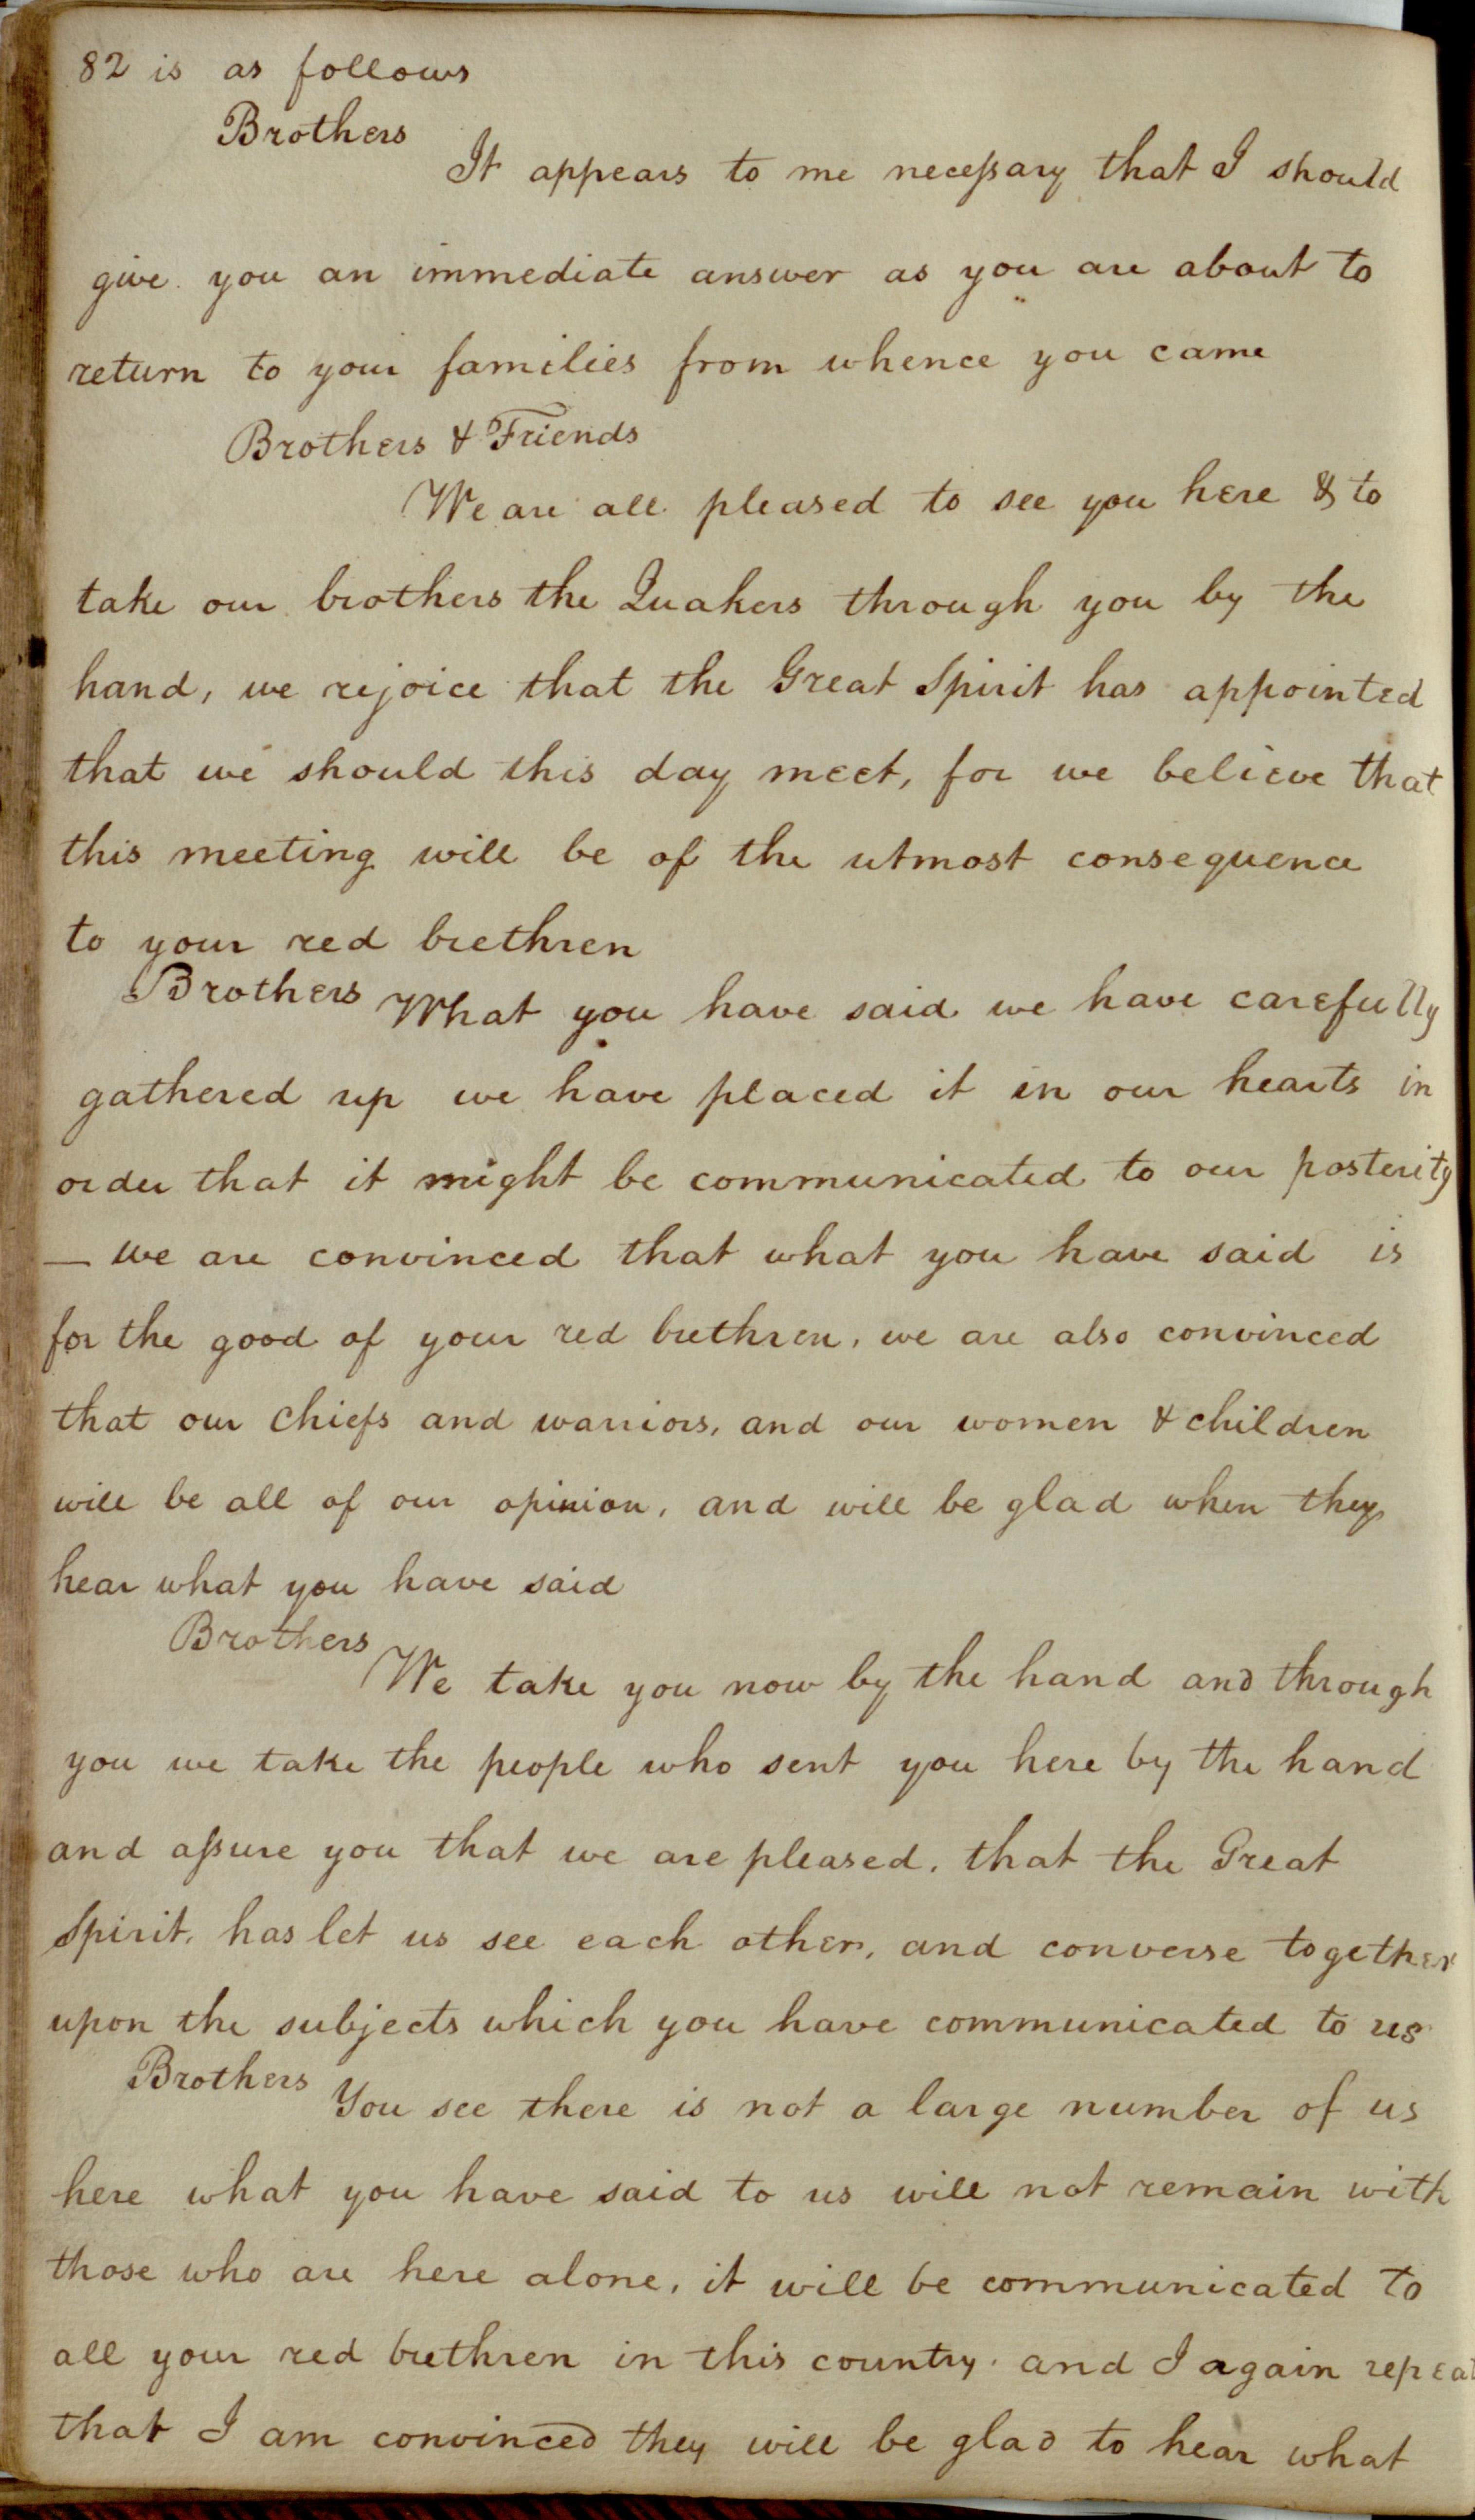 82 is as follows
Brothers
It appears to me necessary that I should
give you an immediate answer as you are about to
return to your families from whence you came
Brothers & Friends
We are all pleased to see you here & to
take our brothers the Quakers through you by the
hand, we rejoice that the Great Spirit has appointed
that we should this day meet, for we believe that
this meeting will be of the utmost consequence
to your red brethren
Brothers What you have said we have carefully
gathered up we have placed it in our hearts in
order that it might be communicated to our posterity
— we are convinced that what you have said is
for the good of your red brethren, we are also convinced
that our chiefs and warriors, and our women & children
will be all of our opinion, and will be glad when they
hear what you have said
Brothers
We take you now by the hand and through
you we take the people who sent you here by the hand
and assure you that we are pleased, that the Great
Spirit, has let us see each other, and converse together
upon the subjects which you have communicated to us
Brothers You see there is not a large number of us
here what you have said to us will not remain with
those who are here alone, it will be communicated to
all your red brethren in this country. and I again repeat
that I am convinced they will be glad to hear what